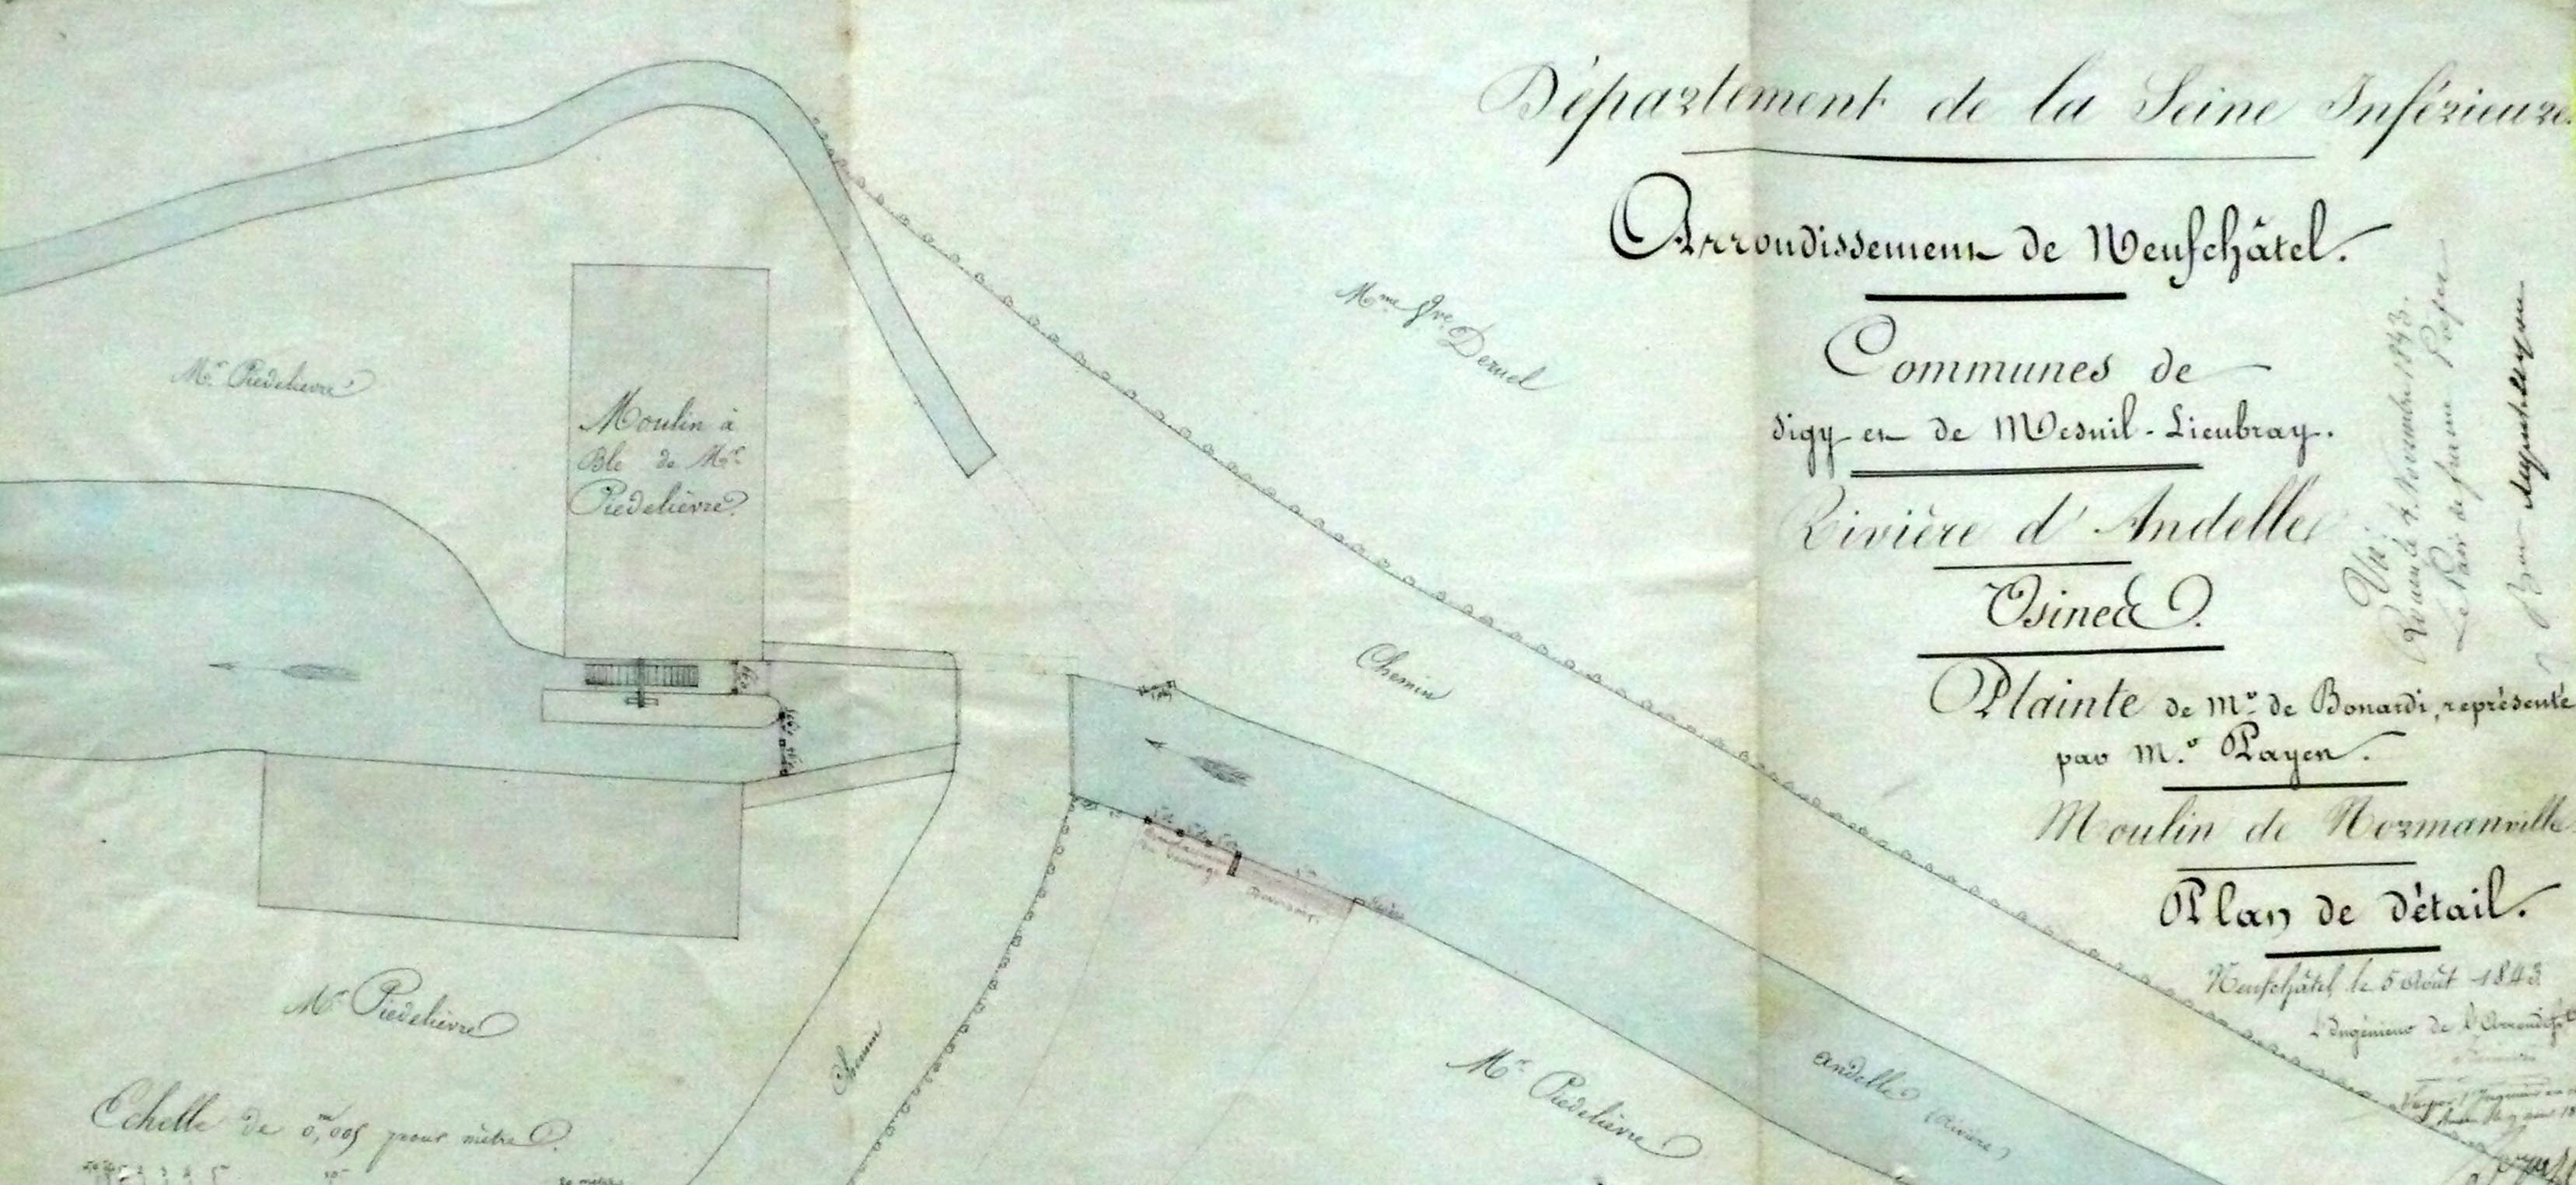 Département de la Seine Inférieure.
Arrondissement de Neufchâtel.
Communes de
Sigy et de Mesnil-Lieubray.
Rivière d'Andelle
Usines.
Plainte de Mr. de Bonardi, représenté
par Mr. Payen.
Moulin de Normanville
Plan de détail.
Neufchâtel, le 5 Août 1843
L'Ingénieur de l'Arrondist
Vu:
Rouen le 4 Novembre 1843.
Le Pair de france Préfet
Bon
Mme Vve Deruel
Mr. Piedelièvre
Moulin à
Blé de Mr
Piedelièvre
Chemin
Mr Piedelièvre
Chemin
Mr Piedelièvre
Andelle (Rivière)
Echelle de 0m,005 pour mètre.